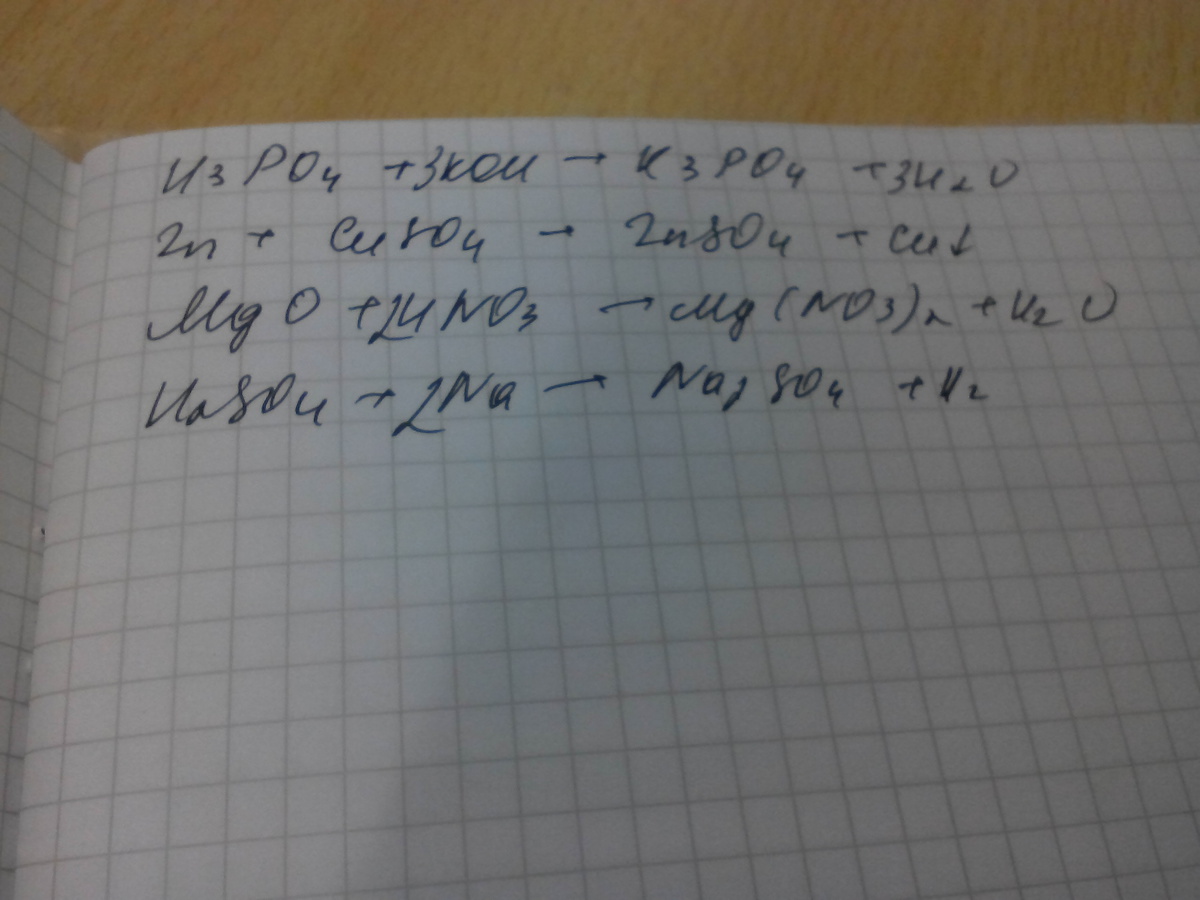 H3PO4 + 3KOH → K3PO4 + 3H2O
Zn + CuSO4 → ZnSO4 + Cu↓
MgO + 2HNO3 → Mg(NO3)2 + H2O
H2SO4 + 2Na → Na2SO4 + H2